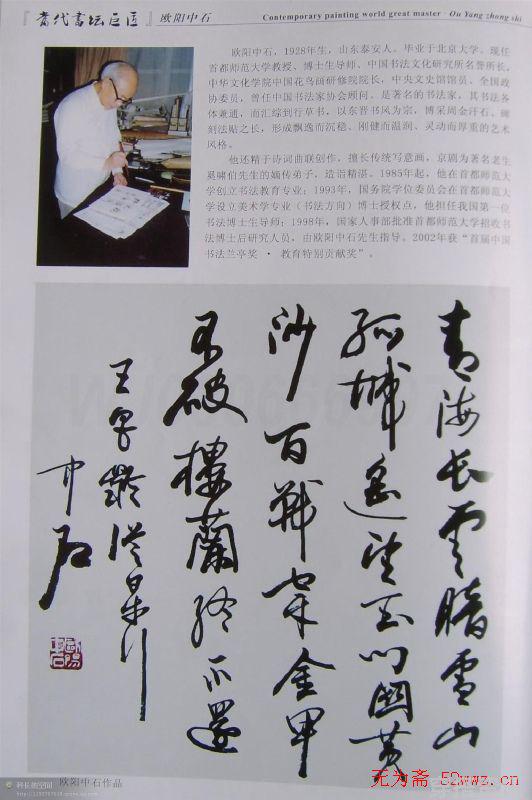 『当代书坛巨匠』欧阳中石
Contemporary painting world great master · Ou Yang zhong shi
欧阳中石，1928年生，山东泰安人。毕业于北京大学。现任
首都师范大学教授、博士生导师、中国书法文化研究所名誉所长，
中华文化学院中国花鸟画研修院院长，中央文史馆馆员、全国政
协委员，曾任中国书法家协会顾问。是著名的书法家，其书法各
体兼通，而汇综到行草书，以东晋书风为宗，博采周金汗石、碑
刻法贴之长，形成飘逸而沉稳、刚健而温润、灵动而厚重的艺术
风格。
他还精于诗词曲联创作，擅长传统写意画，京剧为著名老生
奚啸伯先生的嫡传弟子，造诣精湛。1985年起，他在首都师范大
学创立书法教育专业；1993年，国务院学位委员会在首都师范大
学设立美术学专业（书法方向）博士授权点，他担任我国第一位
书法博士生导师；1998年，国家人事部批准首都师范大学招收书
法博士后研究人员，由欧阳中石先生指导。2002年获“首届中国
书法兰亭奖 · 教育特别贡献奖”。
青海长云暗雪山
孤城遥望玉门關黄
沙百戰穿金甲
不破樓蘭终不還
王昌龄從军行
中石
歐陽中石
欧阳中石作品
无为斋 52wwz.cn